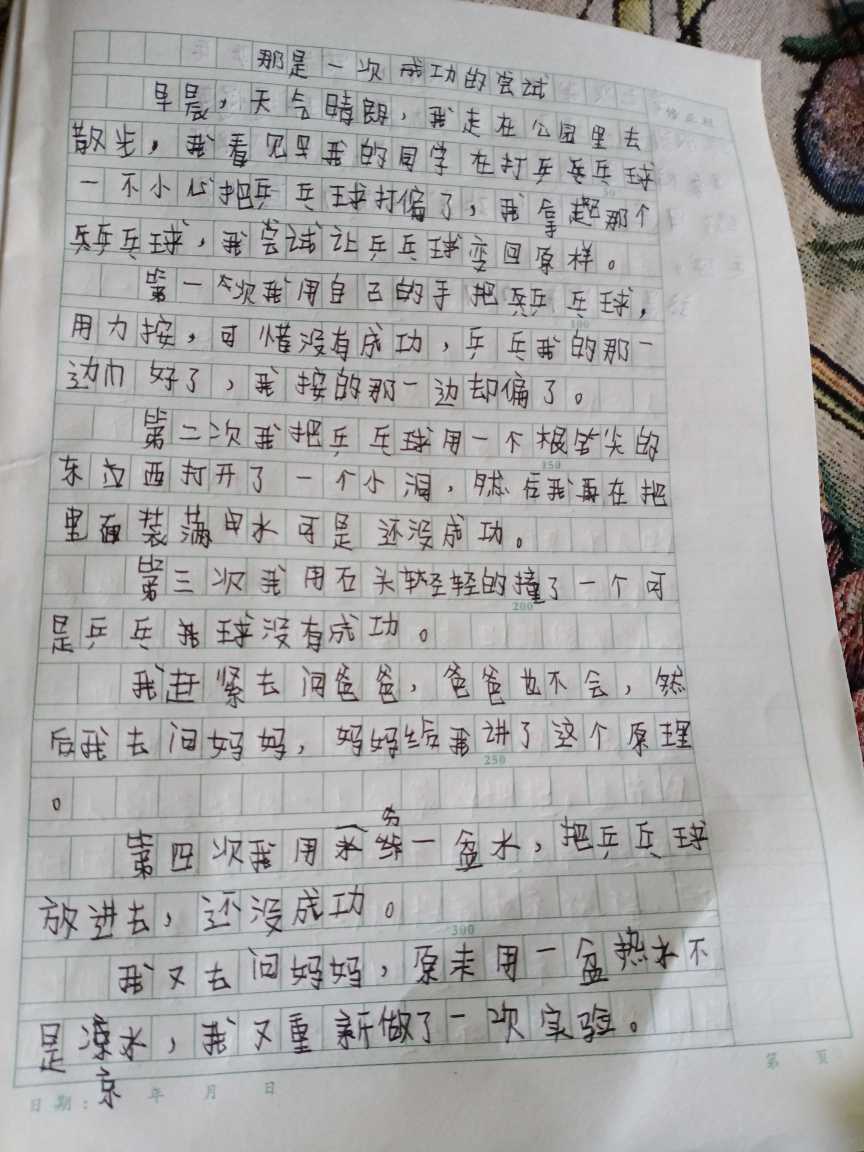 那是一次成功的尝试
早晨，天气晴朗，我走在公园里去
散步，我看见里我的同学在打乒乓乓球
一不小心把乒乓球打偏了，我拿起那个
乒乓球，我尝试让乒乓球变回原样。
第一次我用自己的手把乒乓球，
用力按，可惜没有成功，乒乓我的那一
边 好了，我按的那一边却偏了。
第二次我把乒乓球用一个根笔尖的
东西打开了一个小洞，然后我再在把
里面装满 水可是还没成功。
第三次我用石头轻轻的撞了一个可
是乒乓球没有成功。
我赶紧去问爸爸，爸爸也不会，然
后我去问妈妈，妈妈给我讲了这个原理
。
第四次我用 一盆水，把乒乓球
放进去，还没成功。
我又去问妈妈，原来用一盆热水不
是凉水，我又重新做了一次实验。
京
修正栏
150
200
250
300
日期： 年 月 日
第 页